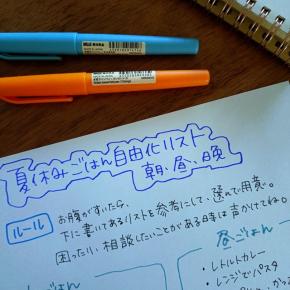 夏休みごはん自由化リスト
朝、昼、晩
ルール
お腹がすいたら、
下に書いてあるリストを参考にして、選んで用意。
困ったり、相談したいことがある時は声かけてね。
昼ごはん
ごはん
・レトルトカレー
・レンジでパスタ